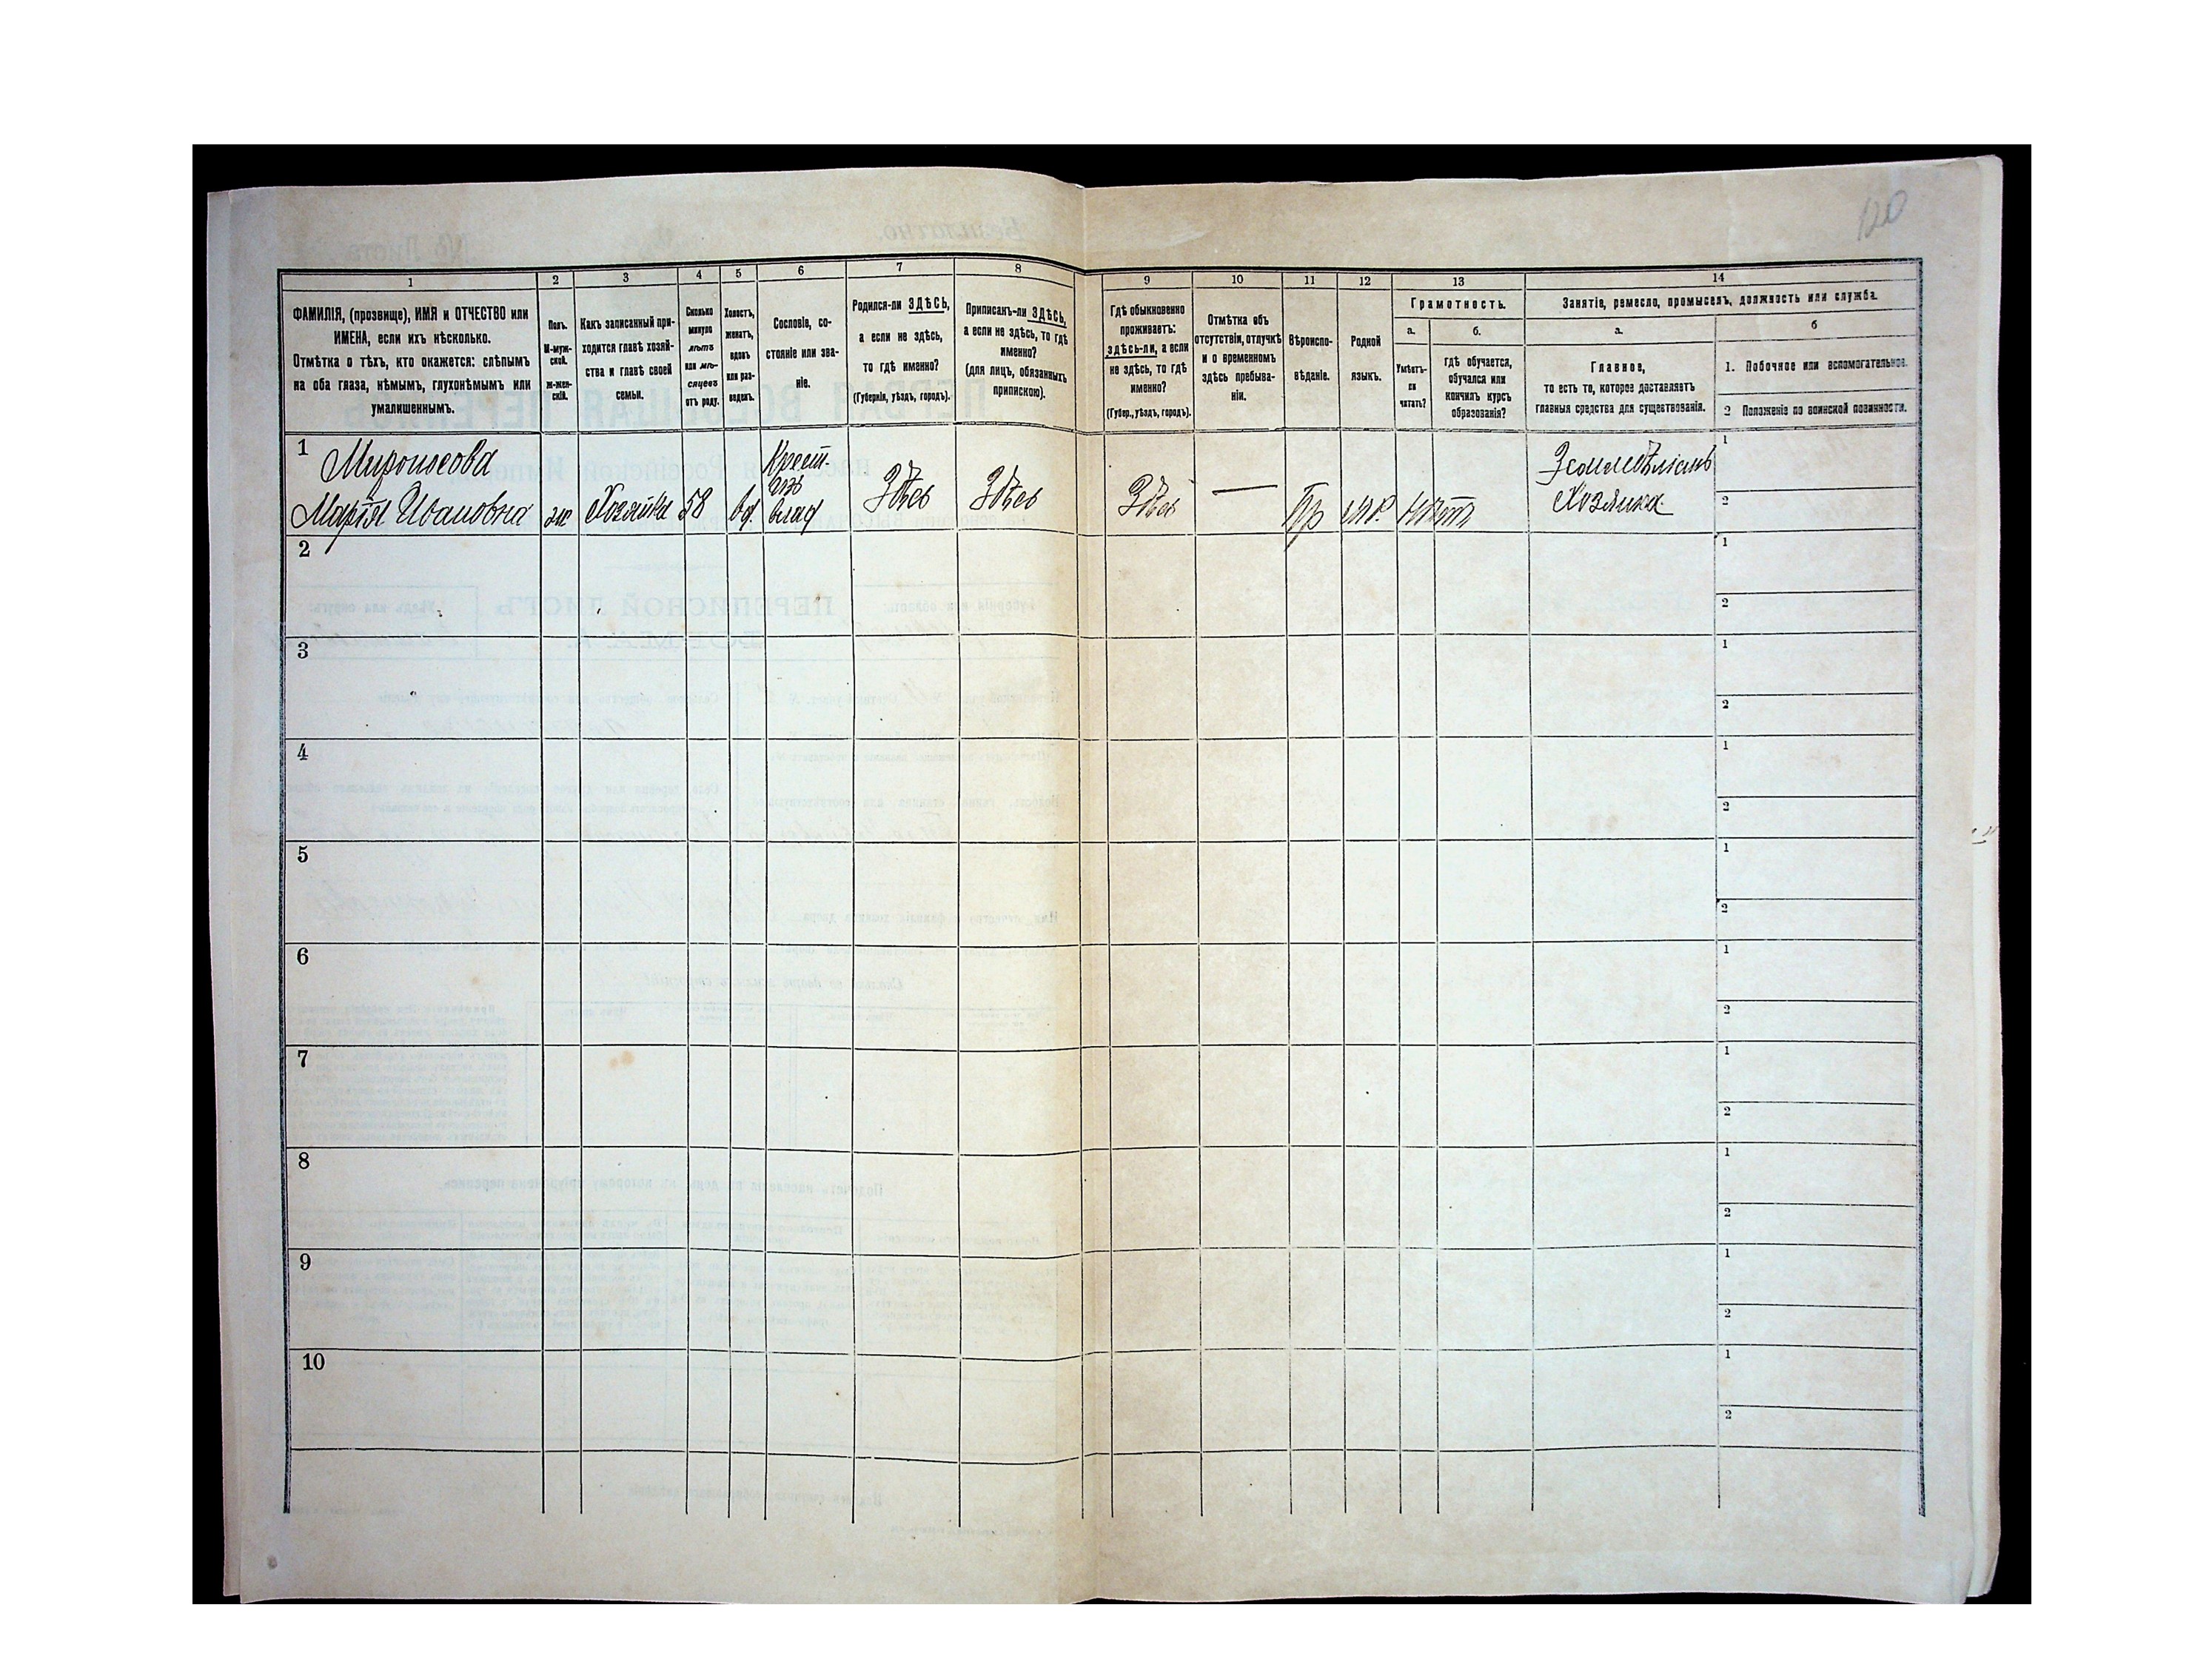 120
1
2
3
4
5
6
7
8
9
10
11
12
13
14
ФАМИЛІЯ, (прозвище), ИМЯ и ОТЧЕСТВО или
ИМЕНА, если ихъ нѣсколько.
Отмѣтка о тѣхъ, кто окажется: слѣпымъ
на оба глаза, нѣмымъ, глухонѣмымъ или
умалишеннымъ.
Полъ.
М-муж-
ской.
ж-жен-
скій.
Какъ записанный при-
ходится главѣ хозяй-
ства и главѣ своей
семьи.
Сколько
минуло
лѣтъ
или мѣ-
сяцевъ
отъ роду.
Холостъ,
женатъ,
вдовъ
или раз-
веденъ.
Сословіе, со-
стояніе или зва-
ніе.
Родился-ли ЗДѢСЬ,
а если не здѣсь,
то гдѣ именно?
(Губернія, уѣздъ, городъ).
Приписанъ-ли ЗДѢСЬ,
а если не здѣсь, то гдѣ
именно?
(для лицъ, обязанныхъ
припискою).
Гдѣ обыкновенно
проживаетъ:
здѣсь-ли, а если
не здѣсь, то гдѣ
именно?
(Губер., уѣздъ, городъ).
Отмѣтка объ
отсутствіи, отлучкѣ
и о временномъ
здѣсь пребыва-
ніи.
Вѣроиспо-
вѣданіе.
Родной
языкъ.
Грамотность.
а.
Умѣетъ-
ли
читать?
б.
гдѣ обучается,
обучался или
кончилъ курсъ
образованія?
Занятіе, ремесло, промыселъ, должность или служба.
а.
Главное,
то есть то, которое доставляетъ
главныя средства для существованія.
б
1. Побочное или вспомогательное.
2 Положеніе по воинской повинности.
1
Марія Ивановна
ж
Хозяйка
58
вд.
Крест.
изъ
влад
Здѣсь
Здѣсь
Здѣсь
—
Пр
мр.
нѣтъ
Хозяйка
1
2
2
1
2
3
1
2
4
1
2
5
1
2
6
1
2
7
1
2
8
1
2
9
1
2
10
1
2